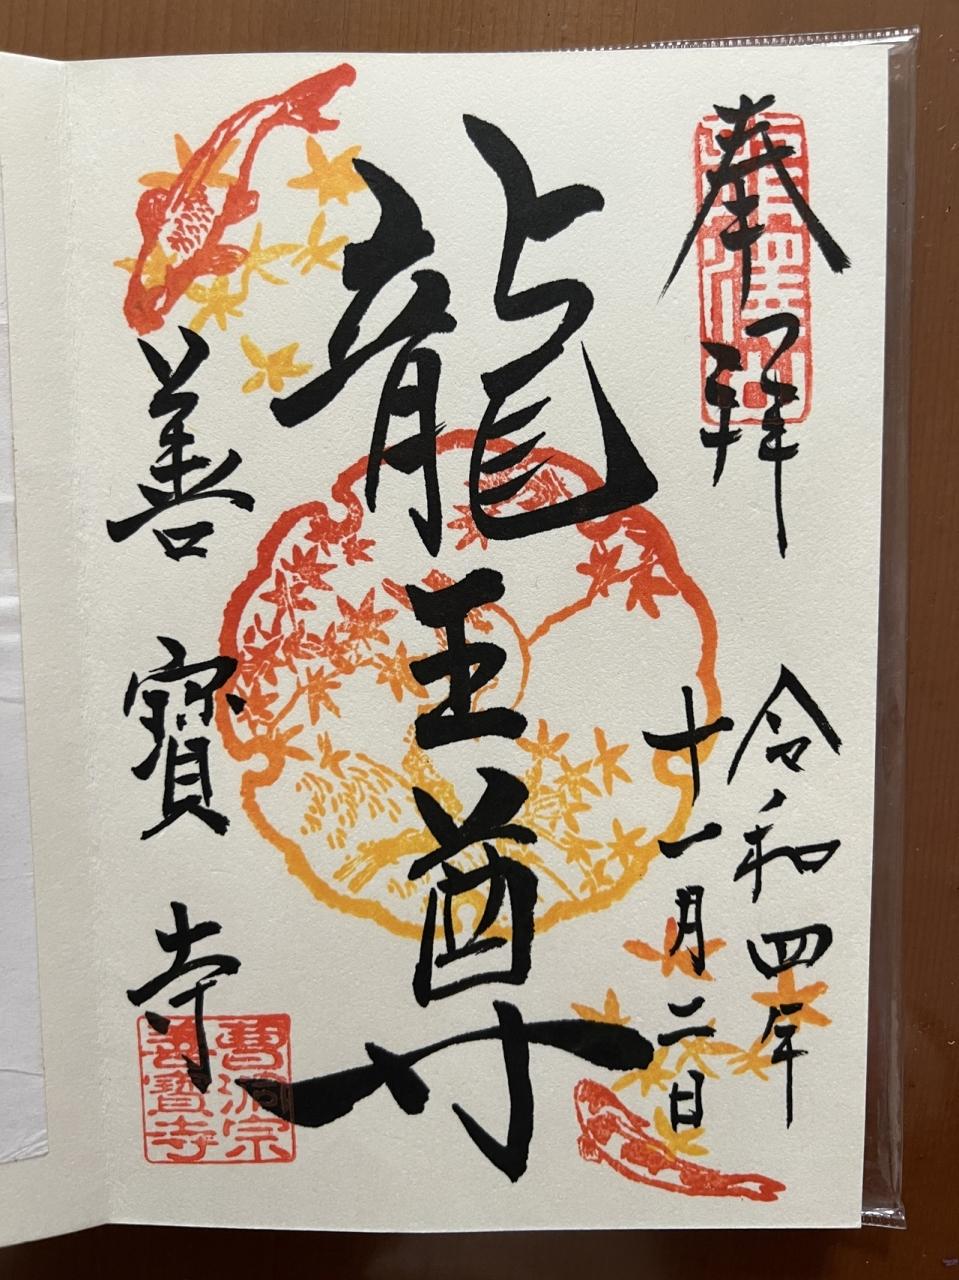 奉拝
令和四年
十一月二日
龍王尊
善寳寺
曹洞宗
善寳寺